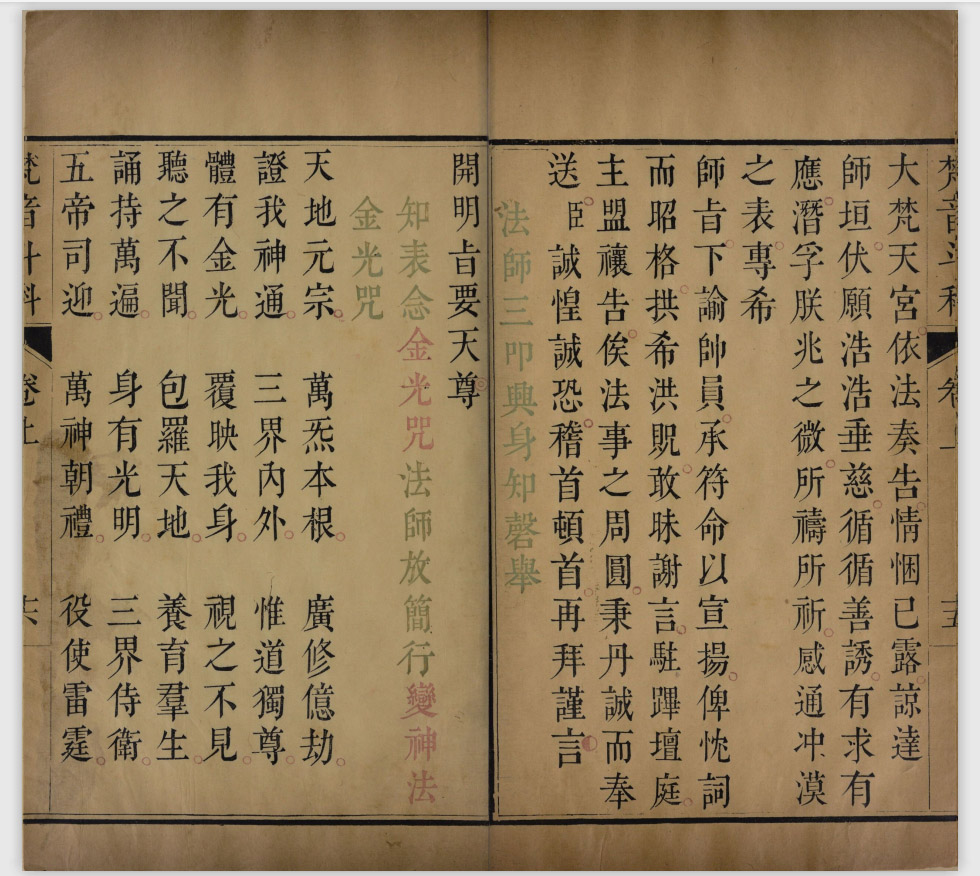 大梵天宮依法奏告情悃已露諒達
師垣伏願浩浩垂慈循循善誘有求有
應潛孚朕兆之微所禱所祈感通冲漠
之表專希
師㫖下諭帥員承符命以宣揚俾忱詞
而昭格拱希洪貺敢昧謝言駐蹕壇庭
主盟禳告俟法事之周圓秉丹誠而奉
送臣誠惶誠恐稽首頓首再拜謹言
法師三叩興身知磬舉
開明㫖要天尊
知表念金光咒法師放簡行變神法
金光咒
天地元宗 萬炁本根 廣修億劫
證我神通 三界內外 惟道獨尊
體有金光 覆映我身 視之不見
聽之不聞 包羅天地 養育羣生
誦持萬遍 身有光明 三界侍衛
五帝司迎 萬神朝禮 役使雷霆